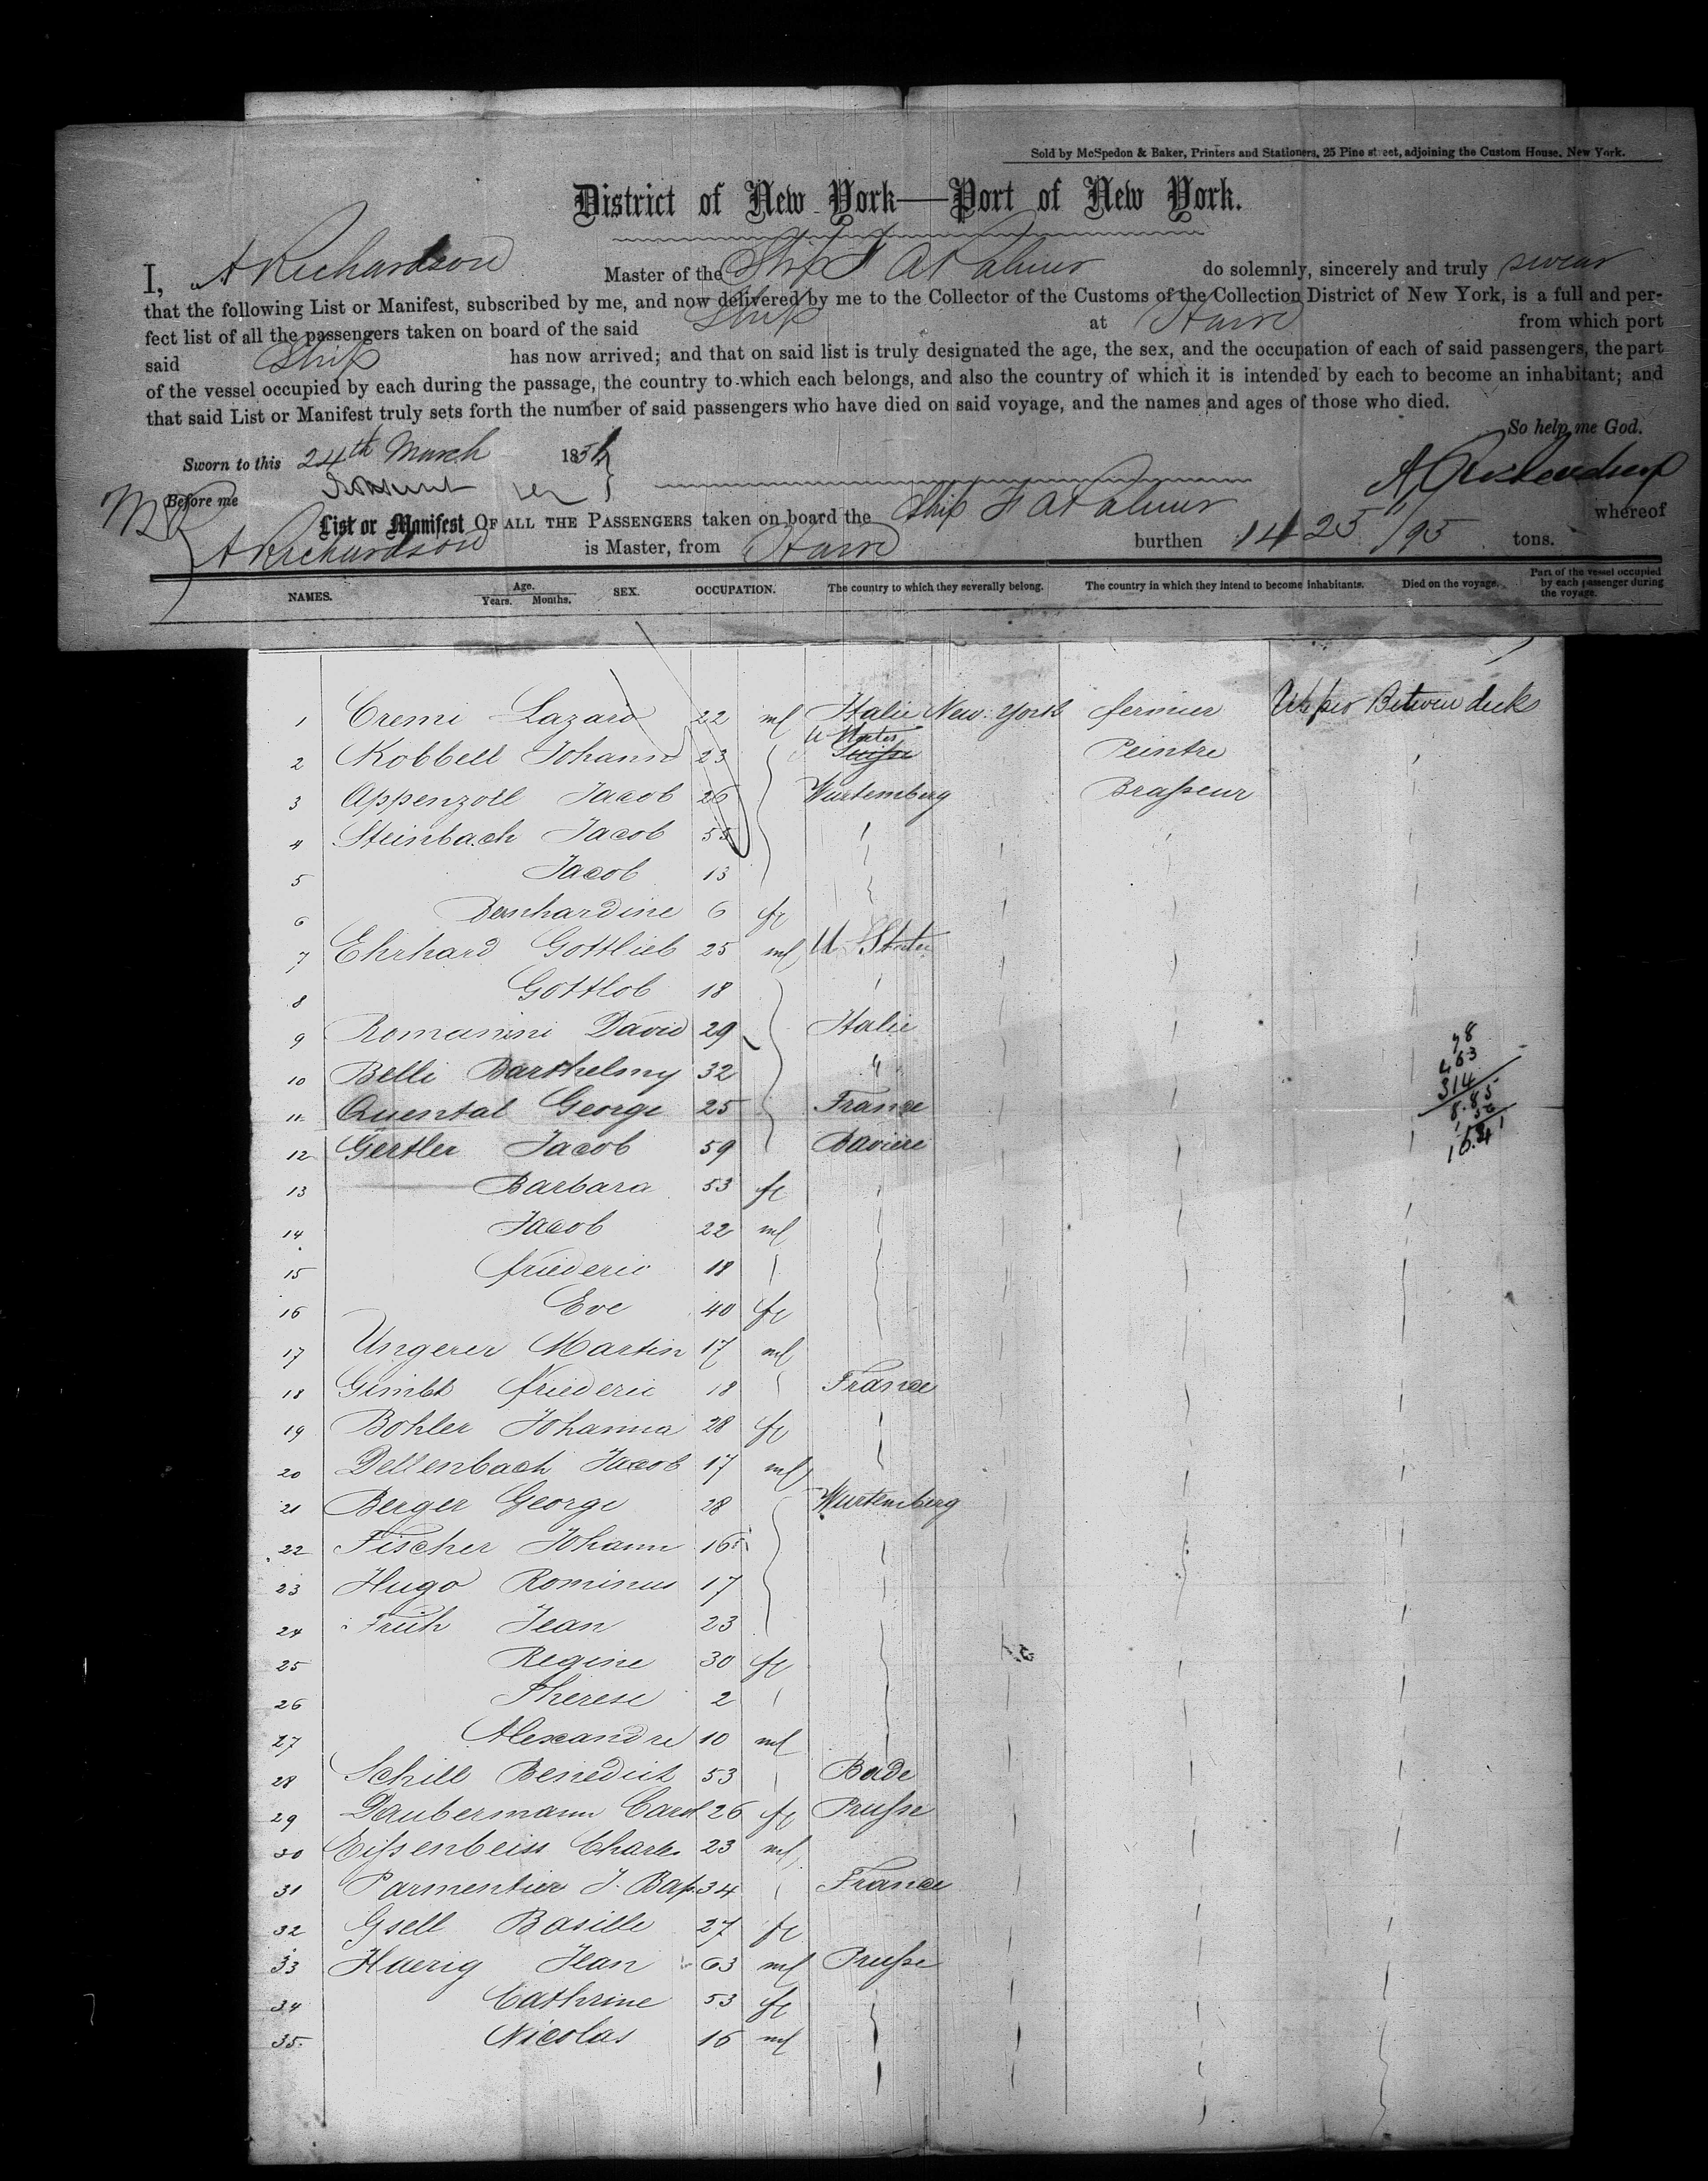 Sold by McSpedon & Baker, Printers and Stationers, 25 Pine street, adjoining the Custom House, New York.
District of New York—Port of New York.
I, A Richardson Master of the Ship F A Palmer do solemnly, sincerely and truly swear
that the following List or Manifest, subscribed by me, and now delivered by me to the Collector of the Customs of the Collection District of New York, is a full and per-
fect list of all the passengers taken on board of the said Ship at Havre from which port
said Ship has now arrived; and that on said list is truly designated the age, the sex, and the occupation of each of said passengers, the part
of the vessel occupied by each during the passage, the country to which each belongs, and also the country of which it is intended by each to become an inhabitant; and
that said List or Manifest truly sets forth the number of said passengers who have died on said voyage, and the names and ages of those who died.
So help me God.
Sworn to this 24th March 185
Before me
A Richardson
List or Manifest OF ALL THE PASSENGERS taken on board the Ship F A Palmer whereof
A Richardson is Master, from Havre burthen 1425 /95 tons.
NAMES. Age. Years. Months. SEX. OCCUPATION. The country to which they severally belong. The country in which they intend to become inhabitants. Died on the voyage. Part of the vessel occupied by each passenger during the voyage.
1 Cremi Lazaro 22 ml Italie New-York fermier Upper Between decks
2 Kobbell Johann 23 U States Suisse Peintre
3 Appenzoll Jacob 26 Wurtemberg Brasseur
4 Steinbach Jacob 55
5 Jacob 13
6 Bernhardine 6 fe
7 Ehrhard Gottlieb 25 ml U States
8 Gottlob 18
9 Romanini David 29 Italie
10 Belli Barthelmy 32 "
11 Quental George 25 France
12 Gertler Jacob 59 Baviere
13 Barbara 53 fe
14 Jacob 22 ml
15 friederic 18
16 Eve 40 fe
17 Ungerer Martin 17 ml
18 Gimbt friederic 18 France
19 Bohler Johanna 28 fe
20 Dellenbach Jacob 17 ml
21 Berger George 28 Wurtemberg
22 Fischer Johann 16
23 Hugo Rominus 17
24 Früh Jean 23
25 Regine 30 fe
26 Therese 2
27 Alexandre 10 ml
28 Schill Benedict 53 Bade
29 Daubermann Carol 26 fe Prusse
30 Eissenbeiss Charles 23 ml
31 Parmentier J. Bap. 34 France
32 Gsell Basille 27 fe
33 Haerig Jean 63 ml Prusse
34 Cathrine 53 fe
35 Nicolas 16 ml